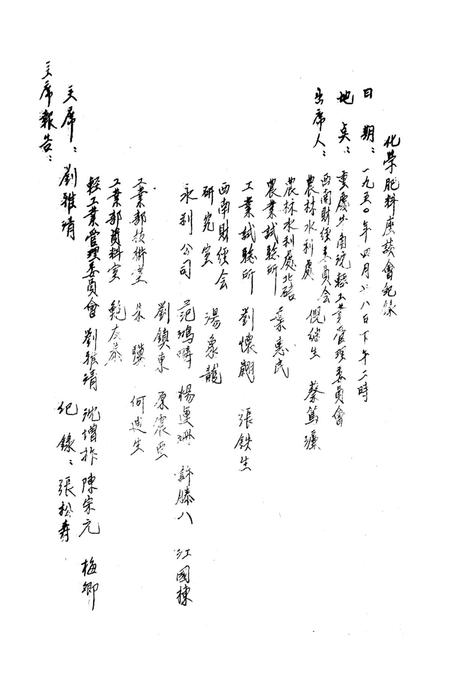 化學肥料座談會紀錄
日 期：一九五〇年四月廿八日下午二時
地 點：重慶 輕工業管理委員會
出席人：西南財經委員會
農林水利處 倪繼生 蔡篤
農林水利處北碚
農業試驗所 葉惠民
工業試驗所 劉懷翺 張鉄生
西南財經會
研究室 湯象龍
永利公司 范鴻疇 楊運珊 許滕八 江國棟
劉鎮東 原震西
工業部技術室 朱 何迺生
工業部資料室 鮑
輕工業管理委員會 劉雅靖 沈增祚 陳宗元 梅卿
主席：劉雅靖 紀錄：張松壽
主席報告：